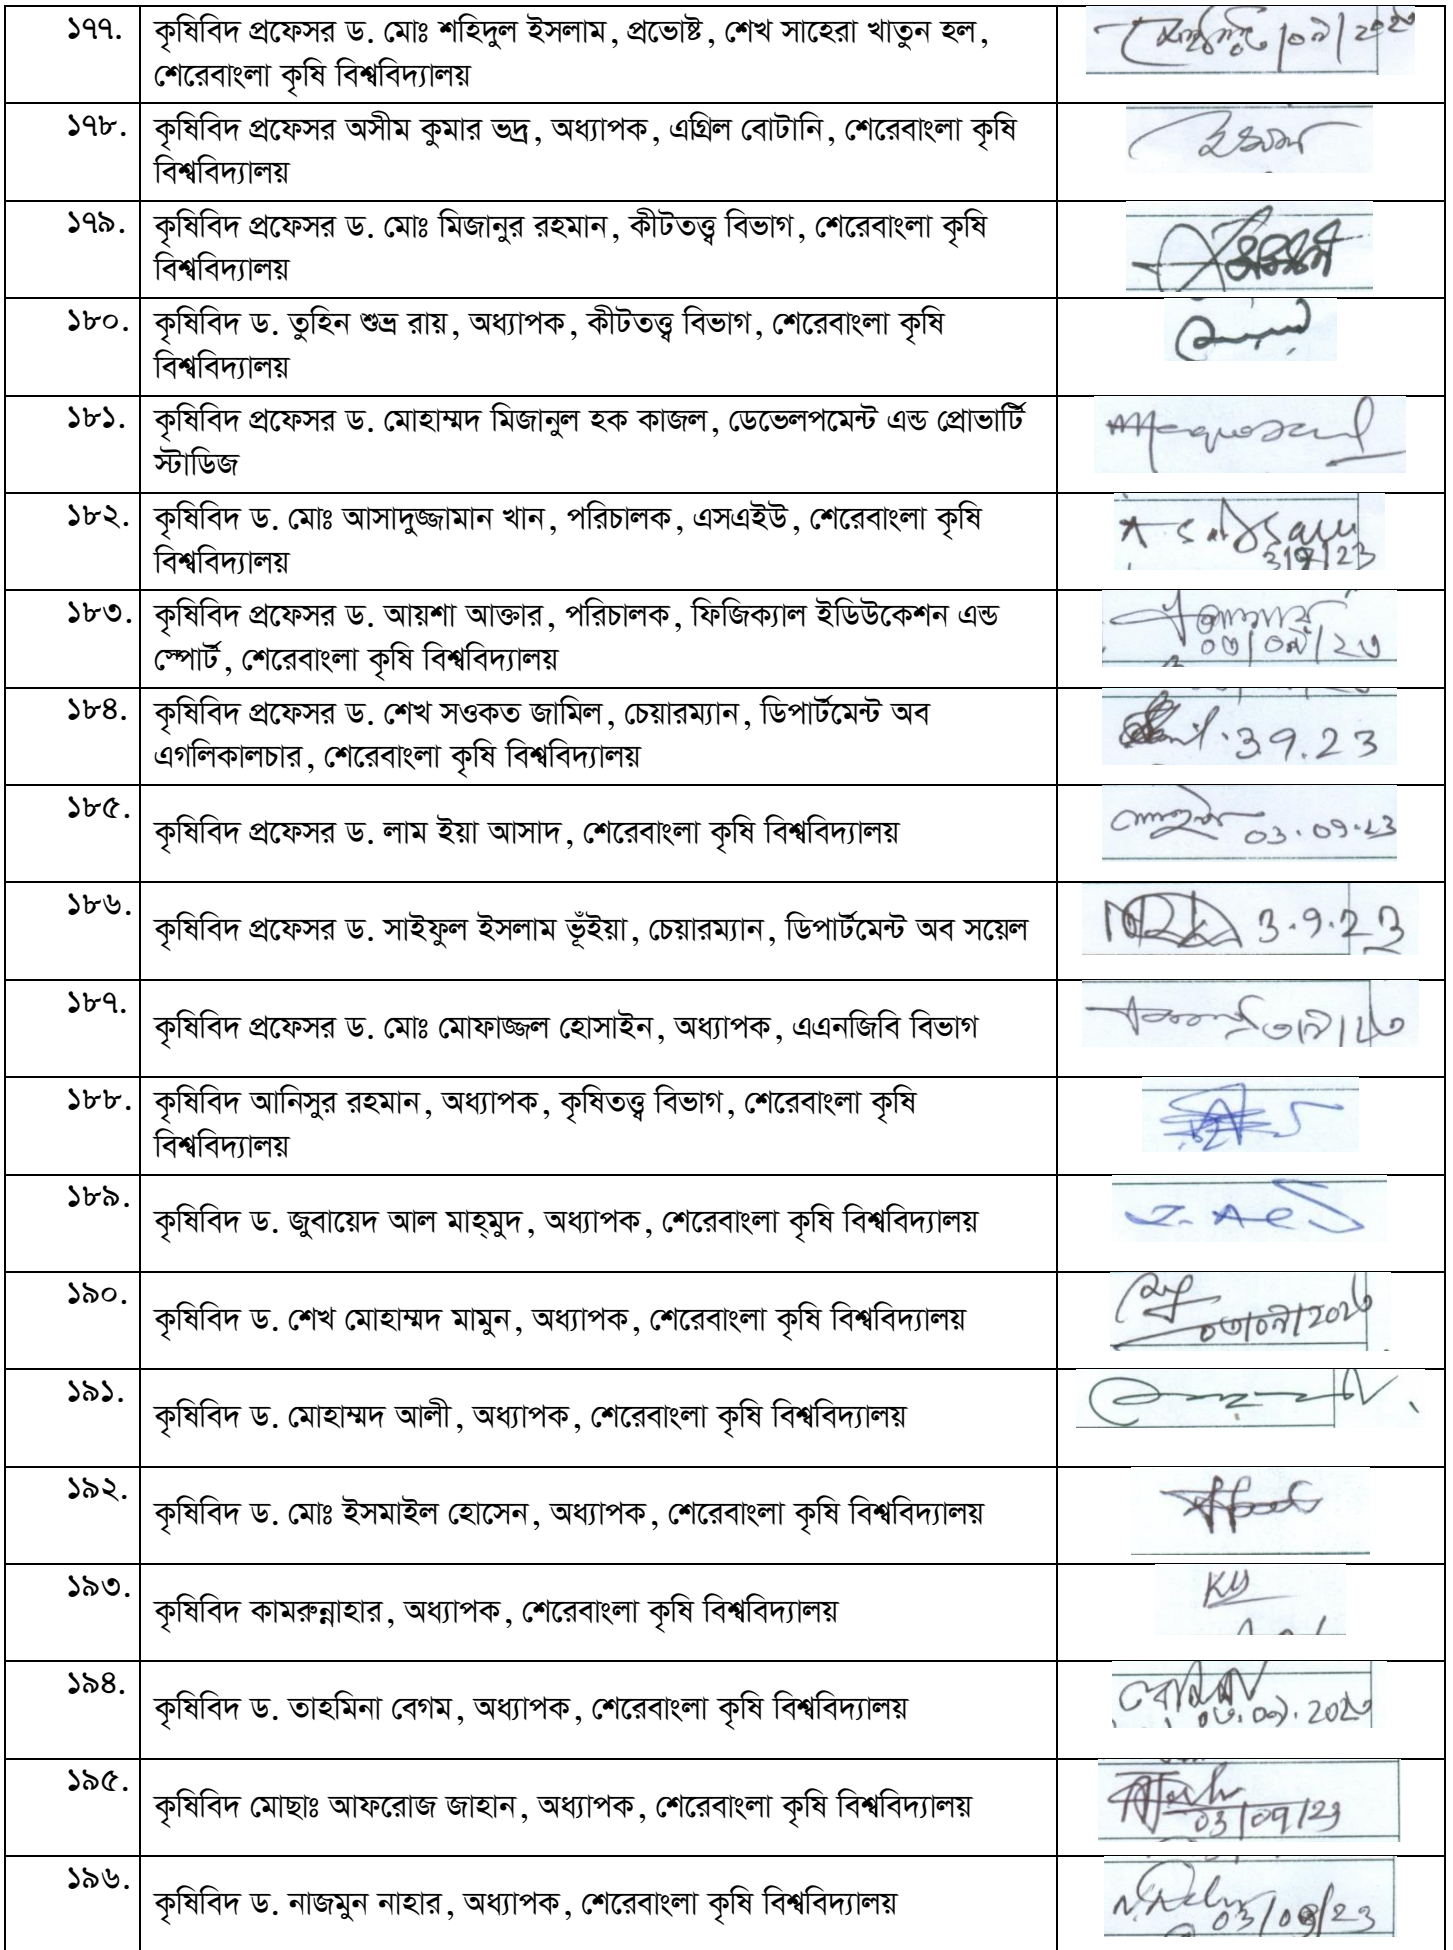 ১৭৭. কৃষিবিদ প্রফেসর ড. মোঃ শহিদুল ইসলাম, প্রভোষ্ট, শেখ সাহেরা খাতুন হল,
শেরেবাংলা কৃষি বিশ্ববিদ্যালয়
১৭৮. কৃষিবিদ প্রফেসর অসীম কুমার ভদ্র, অধ্যাপক, এগ্রিল বোটানি, শেরেবাংলা কৃষি
বিশ্ববিদ্যালয়
১৭৯. কৃষিবিদ প্রফেসর ড. মোঃ মিজানুর রহমান, কীটতত্ত্ব বিভাগ, শেরেবাংলা কৃষি
বিশ্ববিদ্যালয়
১৮০. কৃষিবিদ ড. তুহিন শুভ্র রায়, অধ্যাপক, কীটতত্ত্ব বিভাগ, শেরেবাংলা কৃষি
বিশ্ববিদ্যালয়
১৮১. কৃষিবিদ প্রফেসর ড. মোহাম্মদ মিজানুল হক কাজল, ডেভেলপমেন্ট এন্ড প্রোভার্টি
স্টাডিজ
১৮২. কৃষিবিদ ড. মোঃ আসাদুজ্জামান খান, পরিচালক, এসএইউ, শেরেবাংলা কৃষি
বিশ্ববিদ্যালয় 3/9/23
১৮৩. কৃষিবিদ প্রফেসর ড. আয়শা আক্তার, পরিচালক, ফিজিক্যাল ইডিউকেশন এন্ড
স্পোর্ট, শেরেবাংলা কৃষি বিশ্ববিদ্যালয় ০৩/০৯/২৩
১৮৪. কৃষিবিদ প্রফেসর ড. শেখ সওকত জামিল, চেয়ারম্যান, ডিপার্টমেন্ট অব 3.9.23
এগলিকালচার, শেরেবাংলা কৃষি বিশ্ববিদ্যালয়
১৮৫. কৃষিবিদ প্রফেসর ড. লাম ইয়া আসাদ, শেরেবাংলা কৃষি বিশ্ববিদ্যালয় 03.09.23
১৮৬. কৃষিবিদ প্রফেসর ড. সাইফুল ইসলাম ভূঁইয়া, চেয়ারম্যান, ডিপার্টমেন্ট অব সয়েল 3.9.23
১৮৭. কৃষিবিদ প্রফেসর ড. মোঃ মোফাজ্জল হোসাইন, অধ্যাপক, এএনজিবি বিভাগ ৩/৯/২৩
১৮৮. কৃষিবিদ আনিসুর রহমান, অধ্যাপক, কৃষিতত্ত্ব বিভাগ, শেরেবাংলা কৃষি
বিশ্ববিদ্যালয়
১৮৯. কৃষিবিদ ড. জুবায়েদ আল মাহ্‌মুদ, অধ্যাপক, শেরেবাংলা কৃষি বিশ্ববিদ্যালয়
১৯০. কৃষিবিদ ড. শেখ মোহাম্মদ মামুন, অধ্যাপক, শেরেবাংলা কৃষি বিশ্ববিদ্যালয় ০৩/০৯/২০২৩
১৯১. কৃষিবিদ ড. মোহাম্মদ আলী, অধ্যাপক, শেরেবাংলা কৃষি বিশ্ববিদ্যালয়
১৯২. কৃষিবিদ ড. মোঃ ইসমাইল হোসেন, অধ্যাপক, শেরেবাংলা কৃষি বিশ্ববিদ্যালয়
১৯৩. কৃষিবিদ কামরুন্নাহার, অধ্যাপক, শেরেবাংলা কৃষি বিশ্ববিদ্যালয়
১৯৪. কৃষিবিদ ড. তাহমিনা বেগম, অধ্যাপক, শেরেবাংলা কৃষি বিশ্ববিদ্যালয় ০৩.০৯.২০২৩
১৯৫. কৃষিবিদ মোছাঃ আফরোজ জাহান, অধ্যাপক, শেরেবাংলা কৃষি বিশ্ববিদ্যালয় 03/09/23
১৯৬. কৃষিবিদ ড. নাজমুন নাহার, অধ্যাপক, শেরেবাংলা কৃষি বিশ্ববিদ্যালয় 03/09/23